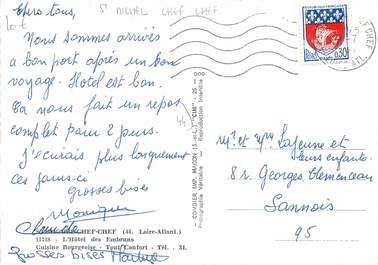 Chers tous,
Nous sommes arrivés
à bon port après un bon
voyage. Hotel est bon.
Ça nous fait un repos
complet pour 2 jours.
J'écrirais plus longuement
ces jours-ci
grosses bises
Monique
CHEF-CHEF (44. Loire-Atlant.)
11718 - L'Hôtel des Embruns
Cuisine Bourgeoise - Tout Confort - Tél. 31
grosses bises
COMBIER IMP. MACON (S.-L.) "CIM"
Photographie Véritable - Reproduction Interdite
St MICHEL CHEF CHEF
44
REPUBLIQUE FRANÇAISE
0,30
PARIS
CHEF
ATL.
Mr et Mme Lajeune et
leurs enfants.
8 r. Georges Clemenceau
Sannois
95